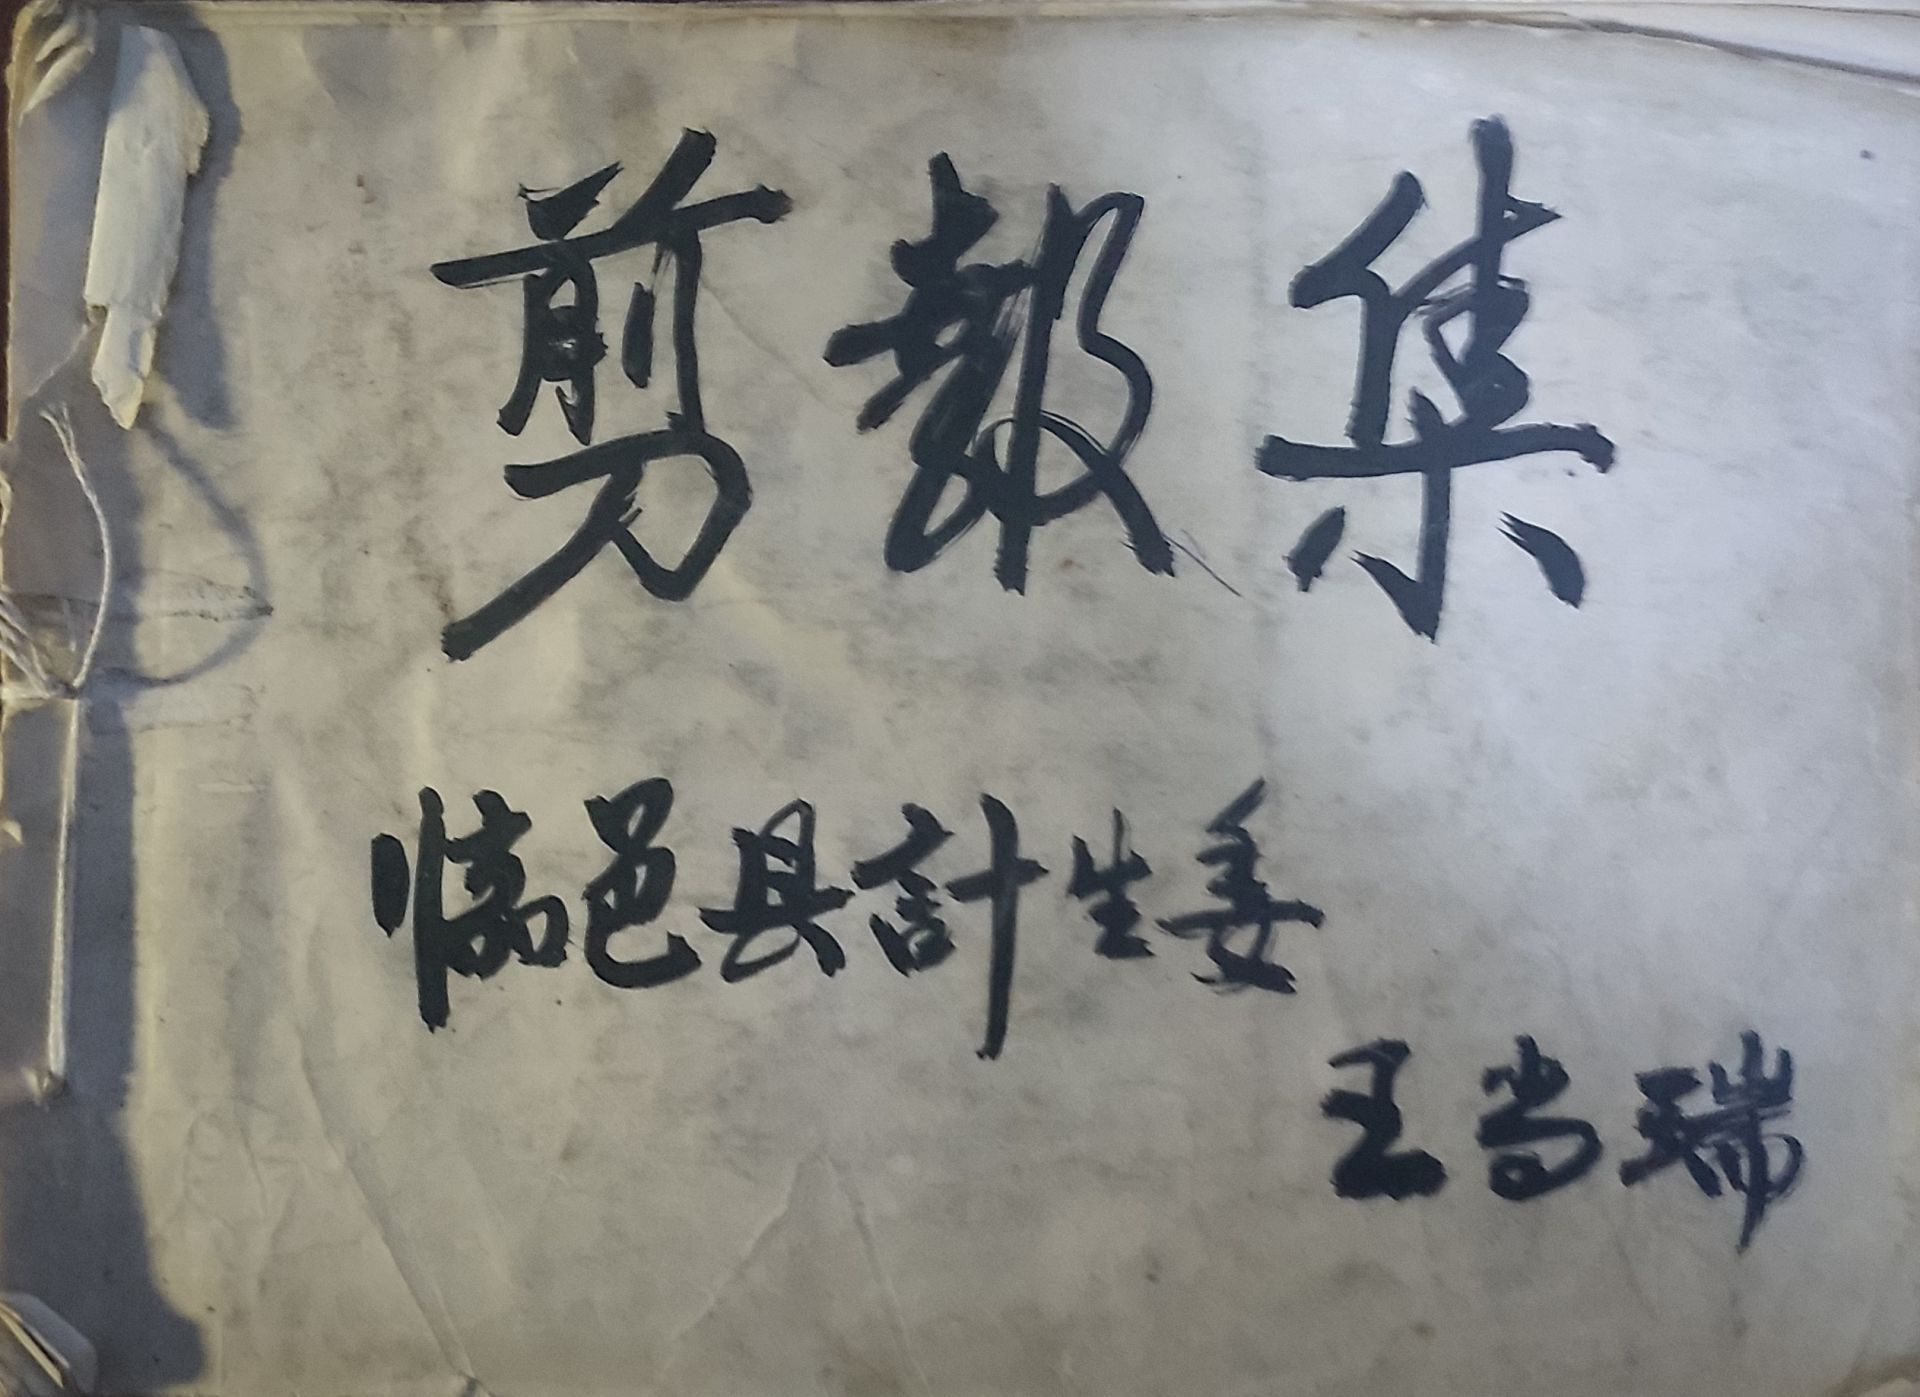 剪報集
临邑县計生委
王尚瑞